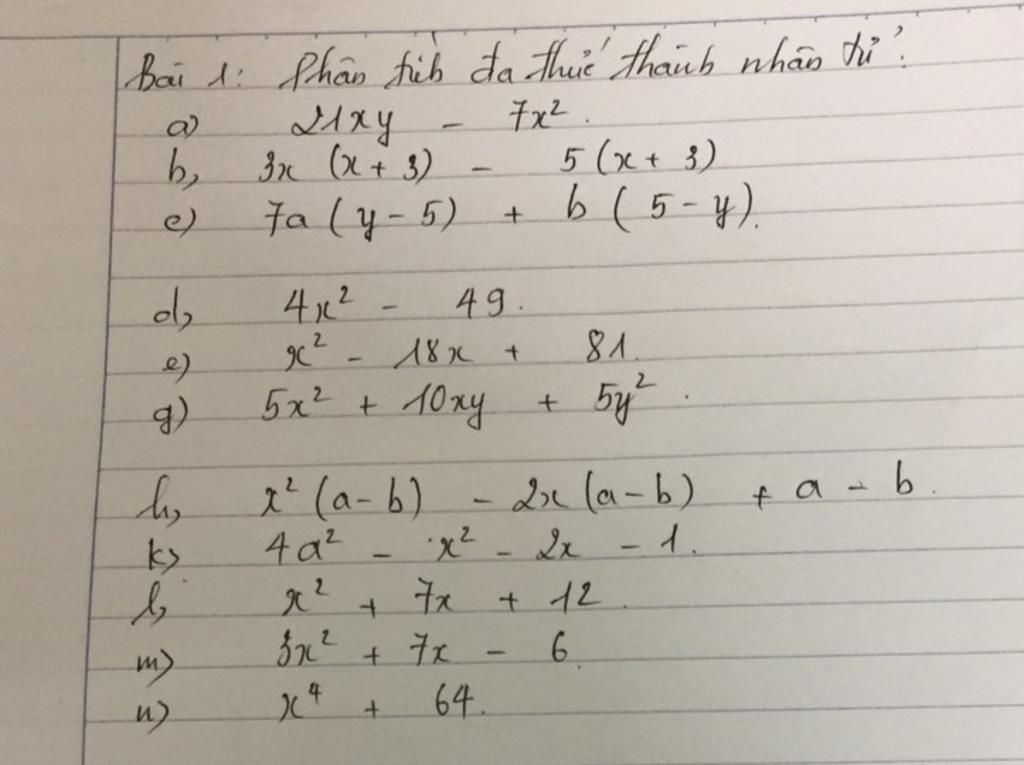 Bài 1: Phân tích đa thức thành nhân tử:
a) 21xy - 7x².
b, 3x (x + 3) - 5 (x + 3)
c) 7a (y - 5) + b (5 - y).
d, 4x² - 49.
e) x² - 18x + 81.
g) 5x² + 10xy + 5y².
h, x² (a - b) - 2x (a - b) + a - b.
k) 4a² - x² - 2x - 1.
l, x² + 7x + 12.
m) 3x² + 7x - 6.
n) x⁴ + 64.